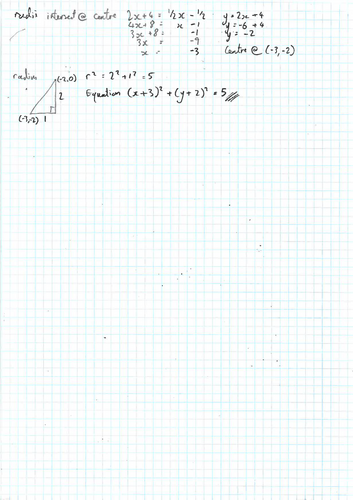 radii intersect @ centre 2x+4 = ½x - ½ y = 2x + 4
4x+8 = x -1 y = -6 + 4
3x+8 = -1 y = -2
3x = -9
x = -3 Centre @ (-3,-2)
radius (-2,0) r² = 2² + 1² = 5
2 Equation (x+3)² + (y+2)² = 5
(-3,-2) 1